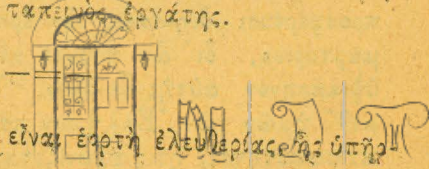 ταπεινὸς ἐργάτης.
εἶναι ἑορτὴ ἐλευθερίας ἧς ὑπῆρ-